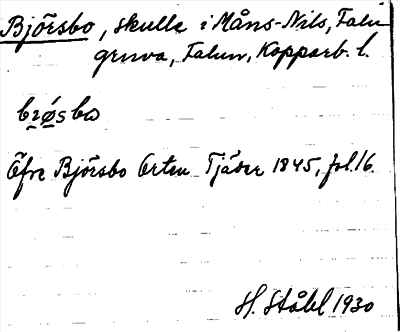 Björsbo, skulle i Måns-Nils, Falu
gruva, Falun, Kopparb. l.
brøsbo
Öfre Björsbo Orten Tjäder 1845, fol. 16.
H. Ståhl 1930